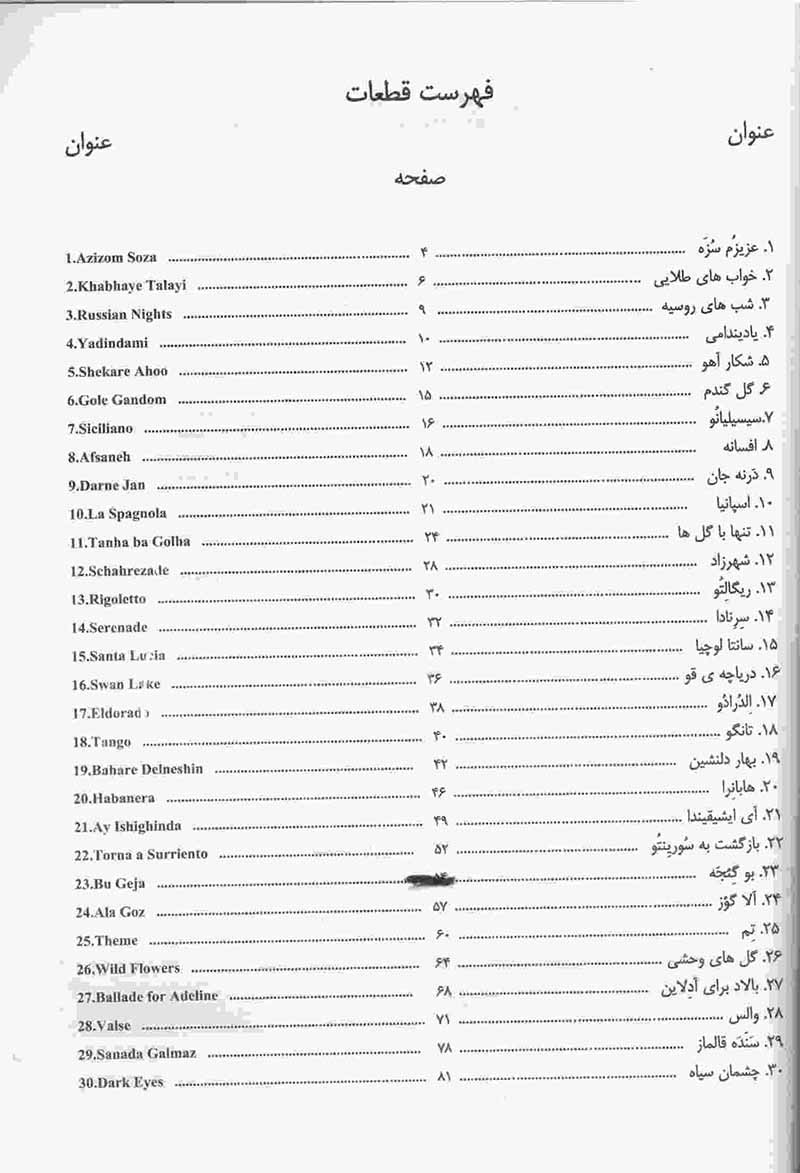 فهرست قطعات
عنوان
عنوان
صفحه
1.Azizom Soza ........ ۴ ........ ۱. عزیزُم سُزَه
2.Khabhaye Talayi ........ ۶ ........ ۲. خواب های طلایی
3.Russian Nights ........ ۹ ........ ۳. شب های روسیه
4.Yadindami ........ ۱۰ ........ ۴. یادیندامی
5.Shekare Ahoo ........ ۱۲ ........ ۵. شکار آهو
6.Gole Gandom ........ ۱۵ ........ ۶. گل گندم
7.Siciliano ........ ۱۶ ........ ۷.سیسیلیانُو
8.Afsaneh ........ ۱۸ ........ ۸. افسانه
9.Darne Jan ........ ۲۰ ........ ۹. دَرنه جان
10.La Spagnola ........ ۲۱ ........ ۱۰. اسپانیا
11.Tanha ba Golha ........ ۲۴ ........ ۱۱. تنها با گل ها
12.Schahrezade ........ ۲۸ ........ ۱۲. شهرزاد
13.Rigoletto ........ ۳۰ ........ ۱۳. ریگالِتُو
14.Serenade ........ ۳۲ ........ ۱۴. سِرِنادا
15.Santa Lucia ........ ۳۴ ........ ۱۵. سانتا لوچیا
16.Swan Lake ........ ۳۶ ........ ۱۶. دریاچه ی قو
17.Eldorado ........ ۳۸ ........ ۱۷. اِلدُرادُو
18.Tango ........ ۴۰ ........ ۱۸. تانگو
19.Bahare Delneshin ........ ۴۲ ........ ۱۹. بهار دلنشین
20.Habanera ........ ۴۶ ........ ۲۰. هابانِرا
21.Ay Ishighinda ........ ۴۹ ........ ۲۱. آی ایشیقیندا
22.Torna a Surriento ........ ۵۲ ........ ۲۲. بازگشت به سُورِینتُو
23.Bu Geja ........ ........ ۲۳. بو گِئجَه
24.Ala Goz ........ ۵۷ ........ ۲۴. آلا گؤز
25.Theme ........ ۶۰ ........ ۲۵. تِم
26.Wild Flowers ........ ۶۴ ........ ۲۶. گل های وحشی
27.Ballade for Adeline ........ ۶۸ ........ ۲۷. بالاد برای آدِلاین
28.Valse ........ ۷۱ ........ ۲۸. والس
29.Sanada Galmaz ........ ۷۸ ........ ۲۹. سَنَدَه قالماز
30.Dark Eyes ........ ۸۱ ........ ۳۰. چشمان سیاه